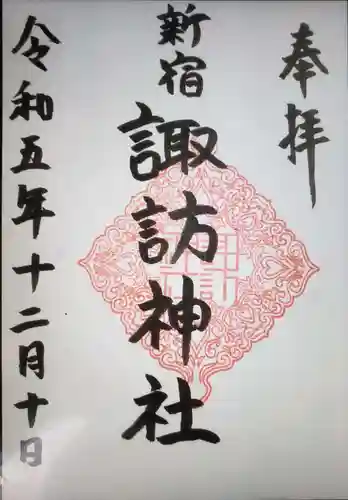 奉拝
新宿
諏訪神社
令和五年十二月十日